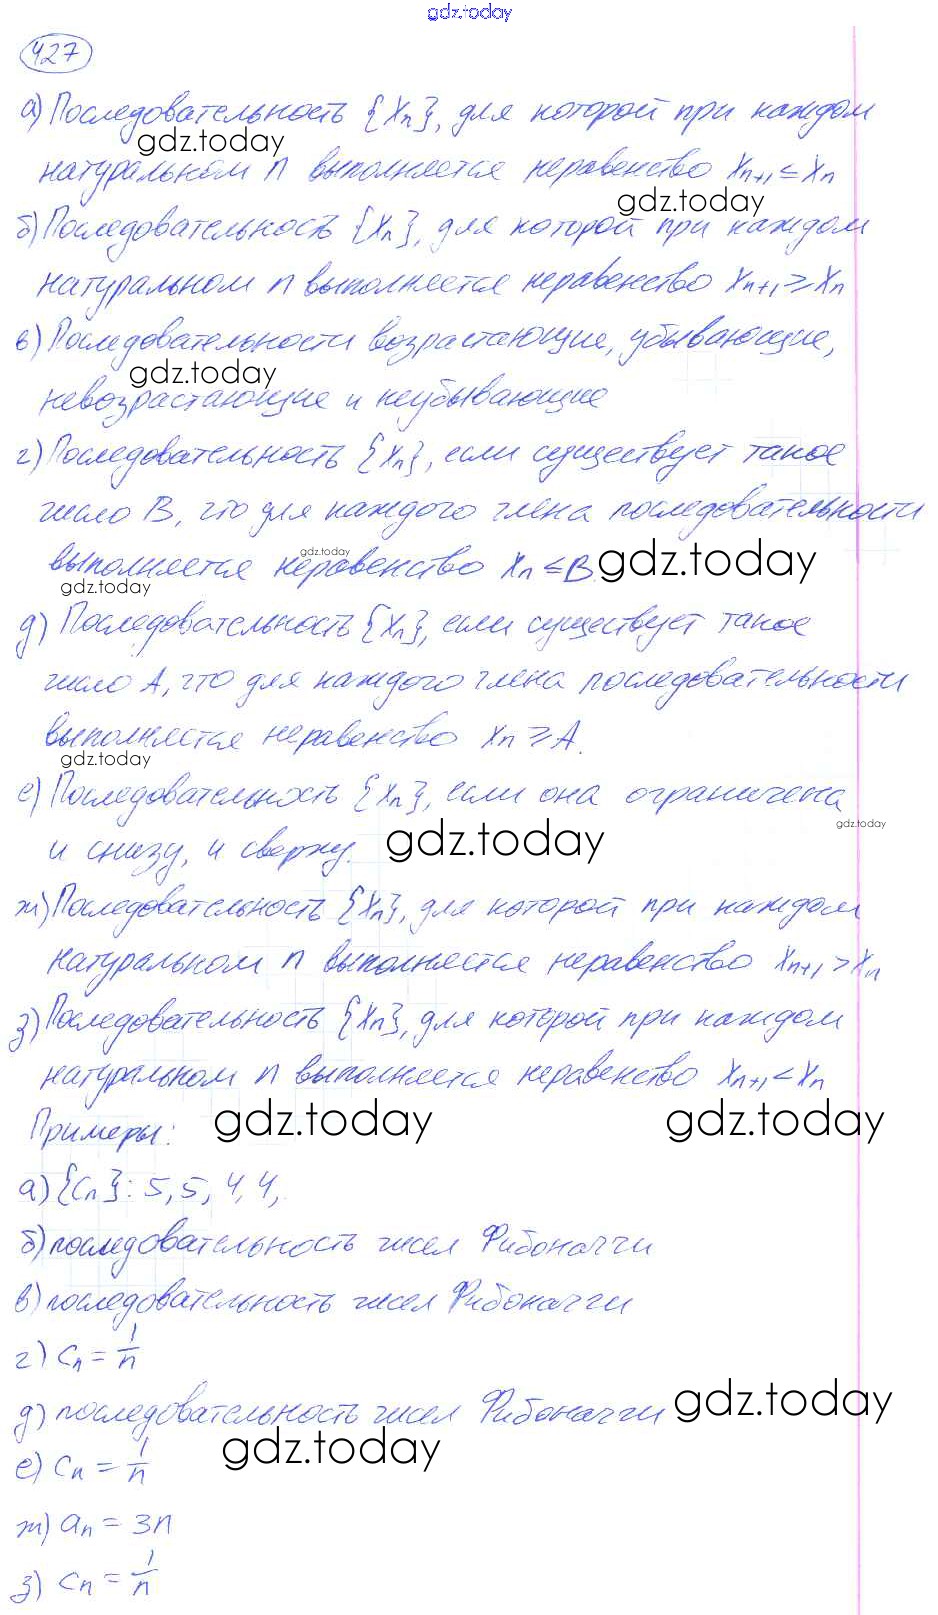 gdz.today
427
а) Последовательность {xₙ}, для которой при каждом
gdz.today
натуральном n выполняется неравенство xₙ₊₁ ≤ xₙ
gdz.today
б) Последовательность {xₙ}, для которой при каждом
натуральном n выполняется неравенство xₙ₊₁ ≥ xₙ
в) Последовательности возрастающие, убывающие,
gdz.today
невозрастающие и неубывающие
г) Последовательность {xₙ}, если существует такое
число B, что для каждого члена последовательности
gdz.today
выполняется неравенство xₙ ≤ B. gdz.today
gdz.today
д) Последовательность {xₙ}, если существует такое
число A, что для каждого члена последовательности
выполняется неравенство xₙ ≥ A.
gdz.today
е) Последовательность {xₙ}, если она ограничена
gdz.today
и снизу, и сверху. gdz.today
ж) Последовательность {xₙ}, для которой при каждом
натуральном n выполняется неравенство xₙ₊₁ > xₙ
з) Последовательность {xₙ}, для которой при каждом
натуральном n выполняется неравенство xₙ₊₁ < xₙ
Примеры: gdz.today gdz.today
а) {cₙ}: 5, 5, 4, 4,.
б) последовательность чисел Фибоначчи
в) последовательность чисел Фибоначчи
г) cₙ = 1/n
д) последовательность чисел Фибоначчи gdz.today
gdz.today
е) cₙ = 1/n
ж) aₙ = 3n
з) cₙ = 1/n